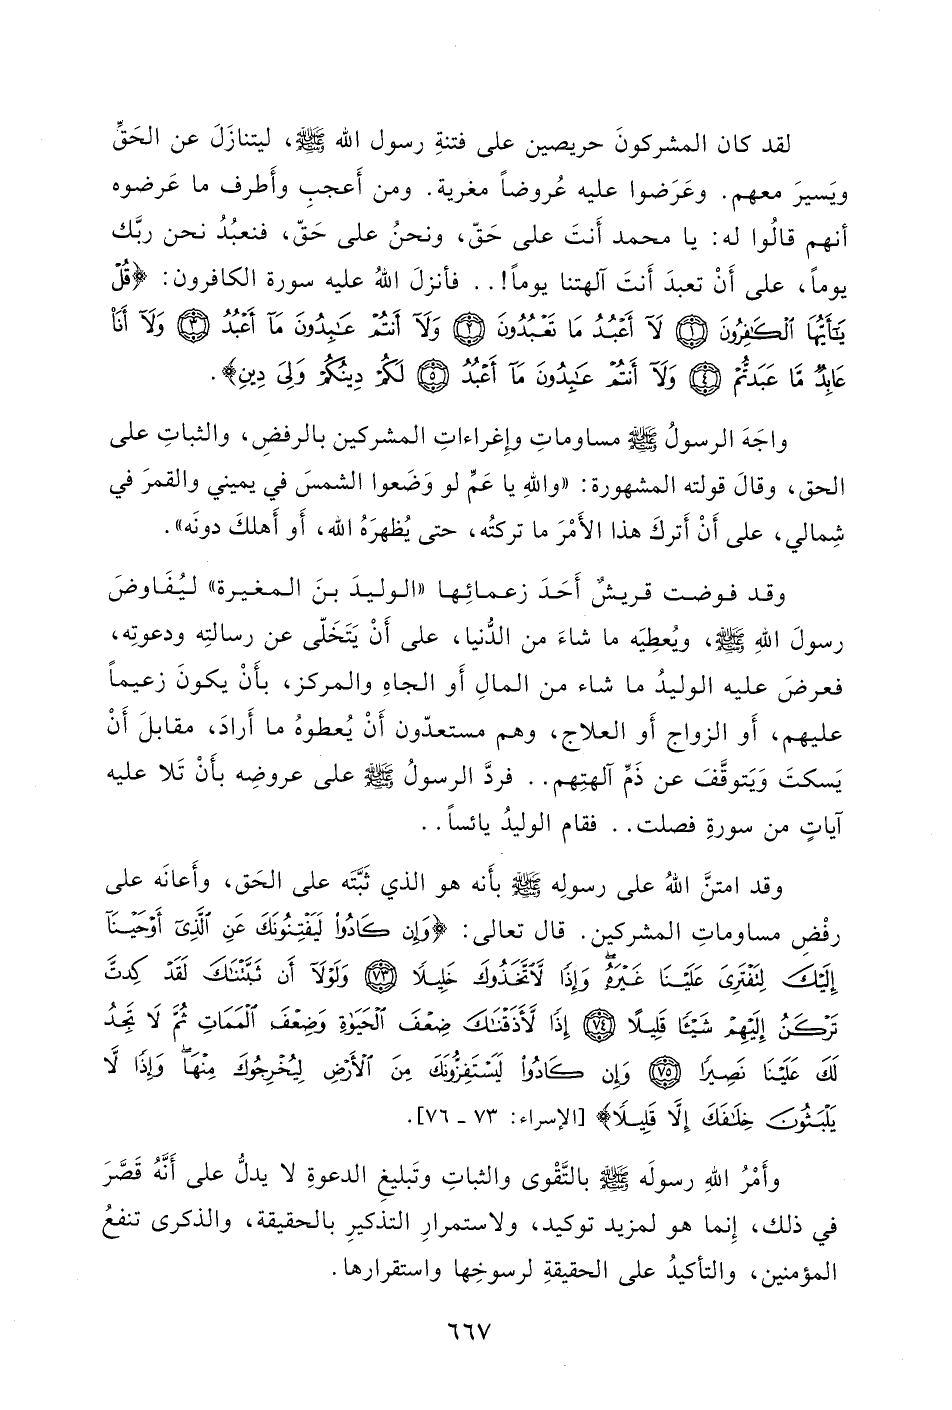 لقد كان المشركونَ حريصين على فتنةِ رسول الله ﷺ، ليتنازَلَ عن الحَقِّ
ويَسيرَ معهم. وعَرَضوا عليه عُروضاً مغرية. ومن أَعجبِ وأَطرف ما عَرضوه
أنهم قالُوا له: يا محمد أَنتَ على حَقّ، ونحنُ على حَقّ، فنعبُدُ نحن ربَّك
يوماً، على أَنْ تعبدَ أَنتَ آلهتنا يوماً!.. فأنزلَ اللهُ عليه سورة الكافرون: ﴿قُلْ
يَٰٓأَيُّهَا ٱلْكَٰفِرُونَ ﴿١﴾ لَآ أَعْبُدُ مَا تَعْبُدُونَ ﴿٢﴾ وَلَآ أَنتُمْ عَٰبِدُونَ مَآ أَعْبُدُ ﴿٣﴾ وَلَآ أَنَا۠
عَابِدٌ مَّا عَبَدتُّمْ ﴿٤﴾ وَلَآ أَنتُمْ عَٰبِدُونَ مَآ أَعْبُدُ ﴿٥﴾ لَكُمْ دِينُكُمْ وَلِيَ دِينِ﴾.
واجَهَ الرسولُ ﷺ مساوماتِ وإِغراءاتِ المشركين بالرفضِ، والثباتِ على
الحق، وقالَ قولته المشهورة: «واللهِ يا عَمِّ لو وَضَعوا الشمسَ في يميني والقمرَ في
شِمالي، على أَنْ أَتركَ هذا الأَمْرَ ما تركتُه، حتى يُظهرَهُ الله، أَو أَهلكَ دونَه».
وقد فوضت قريشٌ أَحَدَ زعمائِها «الوليدَ بنَ المغيرة» ليُفَاوضَ
رسولَ اللهِ ﷺ، ويُعطِيَه ما شاءَ من الدُّنيا، على أَنْ يَتَخَلّى عن رسالتِه ودعوتِه،
فعرضَ عليه الوليدُ ما شاء من المالِ أَو الجاهِ والمركز، بأَنْ يكونَ زعيماً
عليهم، أَو الزواج أَو العلاج، وهم مستعدّون أَنْ يُعطوهُ ما أَرادَ، مقابلَ أَنْ
يَسكتَ وَيَتوقَّفَ عن ذَمِّ آلهتِهم.. فردَّ الرسولُ ﷺ على عروضِه بأَنْ تَلا عليه
آياتٍ من سورةِ فصلت.. فقام الوليدُ يائساً..
وقد امتنَّ اللهُ على رسولِه ﷺ بأَنه هو الذي ثَبَّتَه على الحَق، وأَعانَه على
رفْضِ مساوماتِ المشركين. قال تعالى: ﴿وَإِن كَادُواْ لَيَفْتِنُونَكَ عَنِ ٱلَّذِىٓ أَوْحَيْنَآ
إِلَيْكَ لِتَفْتَرِىَ عَلَيْنَا غَيْرَهُۥۖ وَإِذًا لَّٱتَّخَذُوكَ خَلِيلًا ﴿٧٣﴾ وَلَوْلَآ أَن ثَبَّتْنَٰكَ لَقَدْ كِدتَّ
تَرْكَنُ إِلَيْهِمْ شَيْـًٔا قَلِيلًا ﴿٧٤﴾ إِذًا لَّأَذَقْنَٰكَ ضِعْفَ ٱلْحَيَوٰةِ وَضِعْفَ ٱلْمَمَاتِ ثُمَّ لَا تَجِدُ
لَكَ عَلَيْنَا نَصِيرًا ﴿٧٥﴾ وَإِن كَادُواْ لَيَسْتَفِزُّونَكَ مِنَ ٱلْأَرْضِ لِيُخْرِجُوكَ مِنْهَاۖ وَإِذًا لَّا
يَلْبَثُونَ خِلَٰفَكَ إِلَّا قَلِيلًا﴾ [الإسراء: ٧٣ ـ ٧٦].
وأَمْرُ اللهِ رسولَه ﷺ بالتَّقْوى والثباتِ وتَبليغِ الدعوةِ لا يدلُّ على أَنَّهُ قَصَّرَ
في ذلك، إِنما هو لمزيد توكيد، ولاستمرارِ التذكيرِ بالحقيقة، والذكرى تنفعُ
المؤمنين، والتأكيدُ على الحقيقةِ لرسوخِها واستقرارها.
٦٦٧